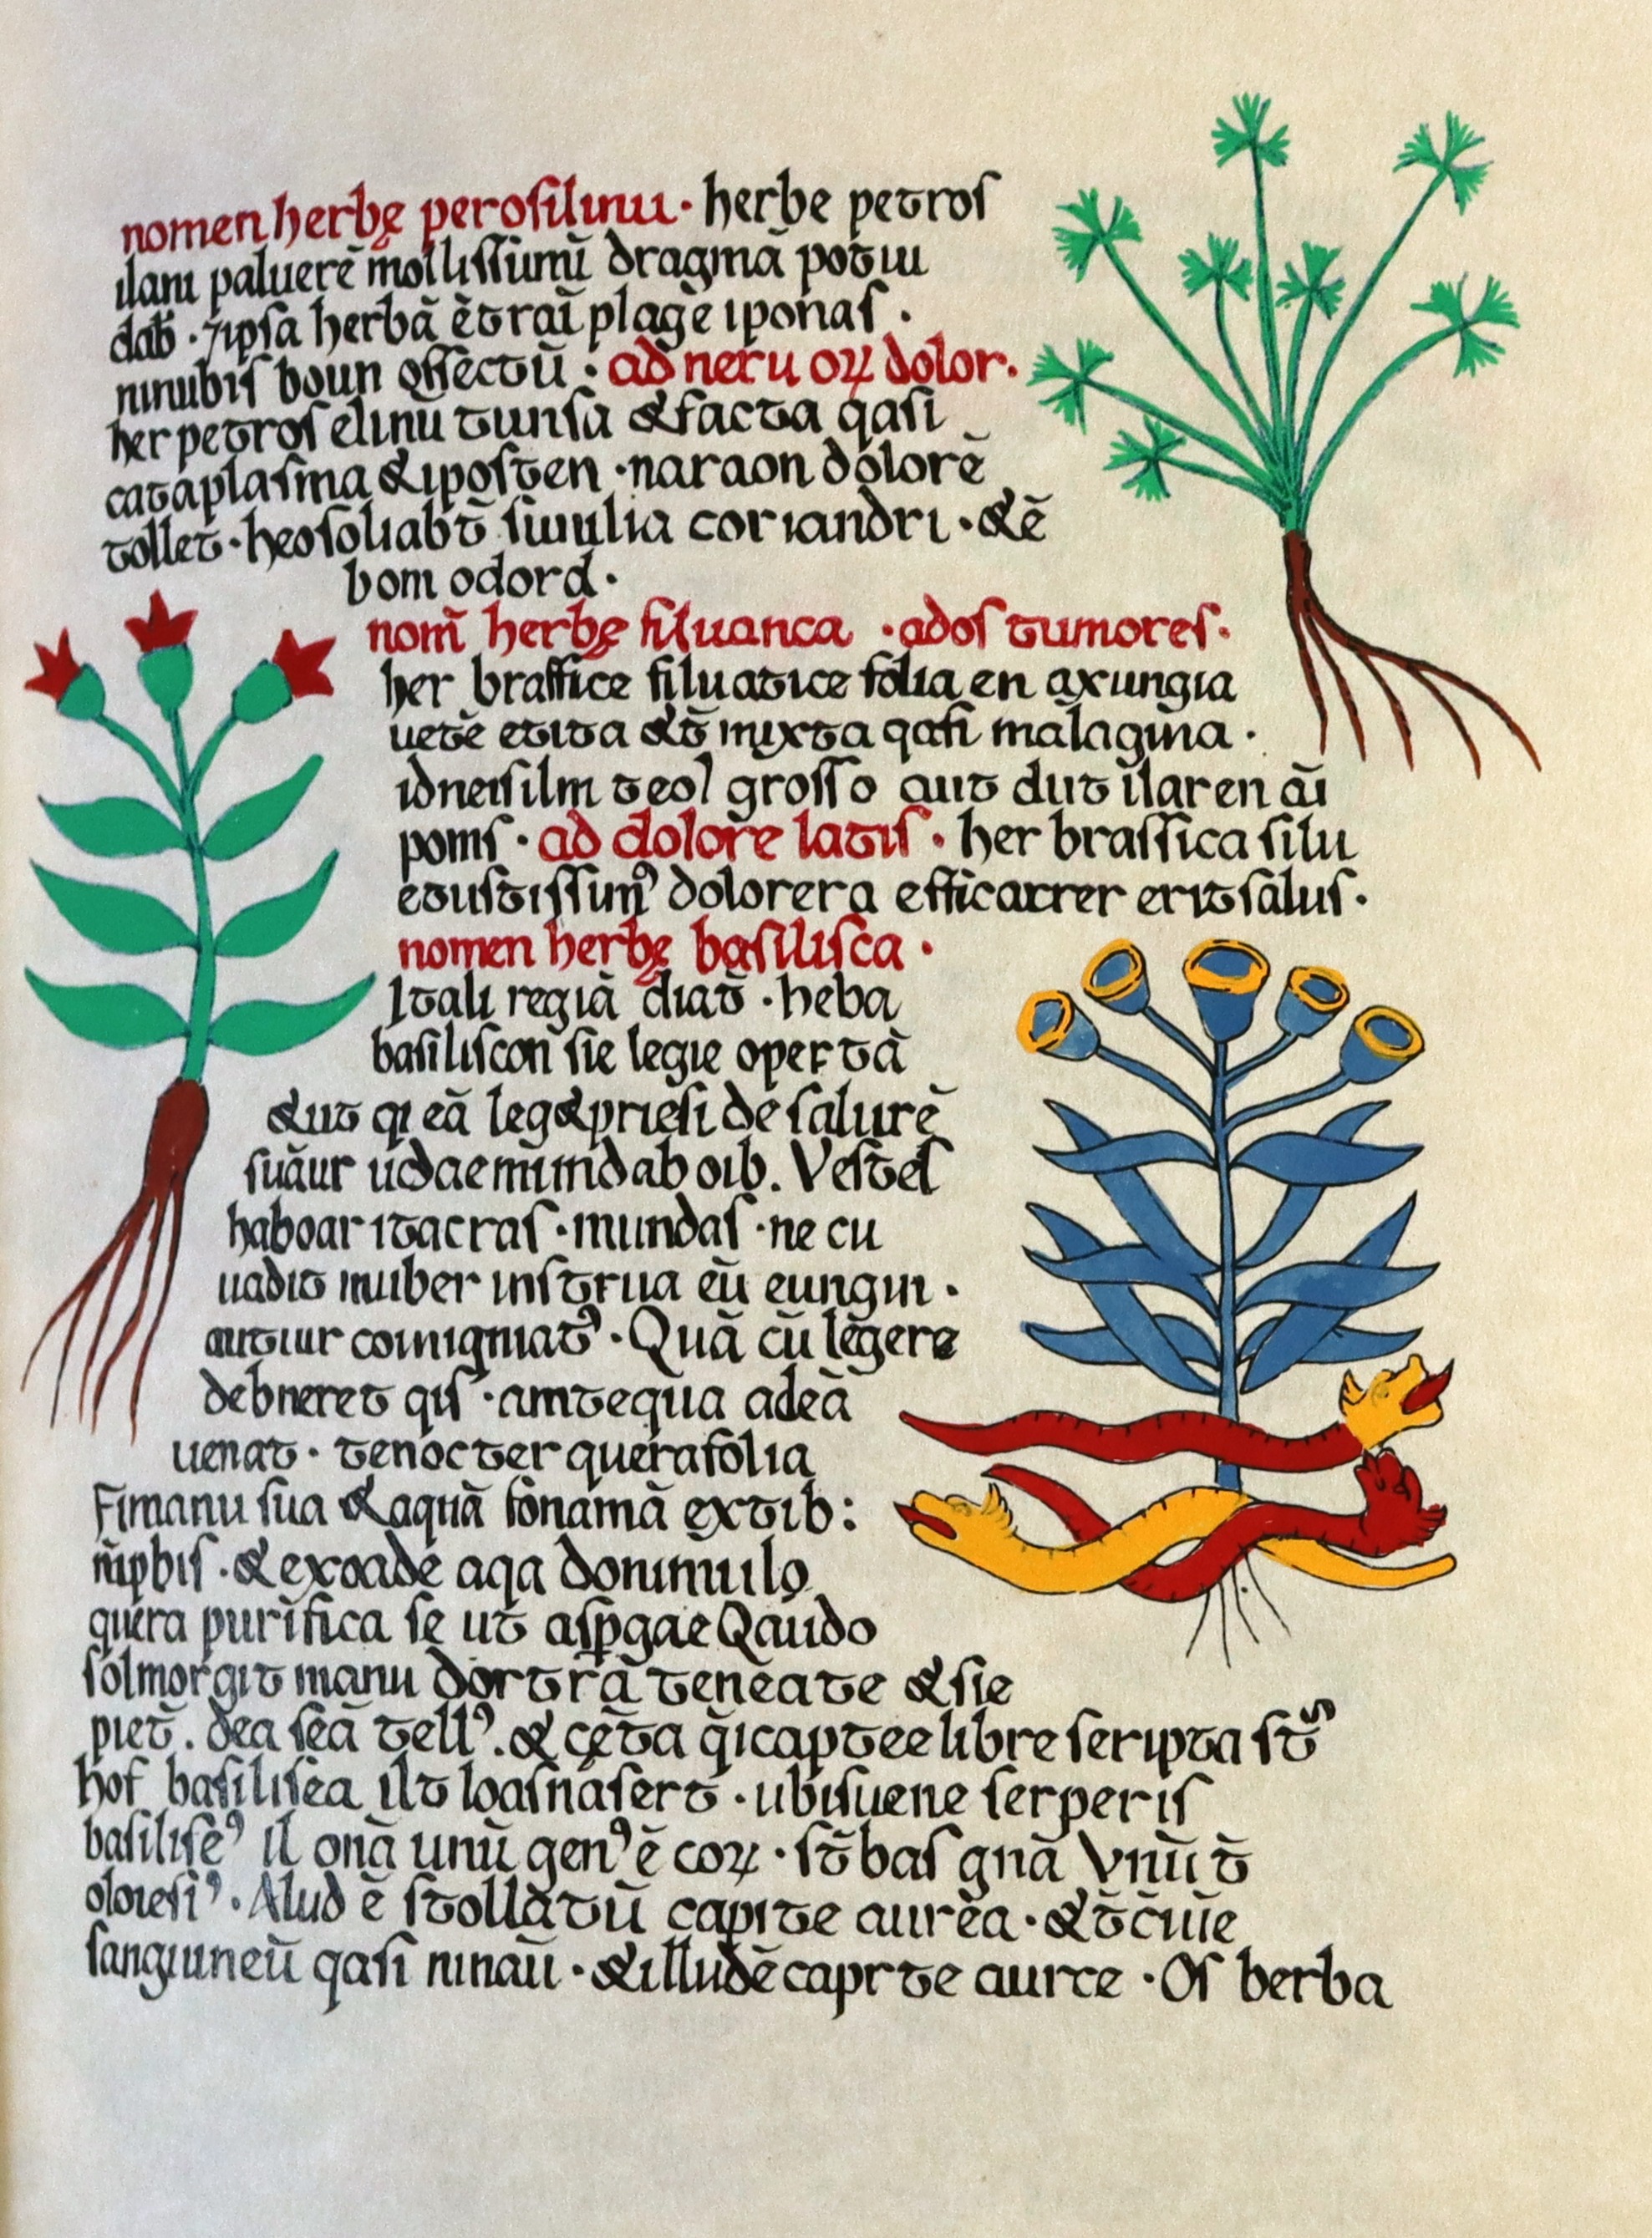 nomen herbę perosilinu · herbe petros
ilani paluerē mollissimū dragmā potui
dab̄ · ⁊ipsa herbā ētraī plagē iponas ·
ninubis boun effectū · ad neruoꝝ dolor ·
her petroselinu tunsa &facta qasi
cataplasma &iposten · naraon dolorē
tollet · heo foliabt̄ similia coriandri · &ē
bom odord ·
nom̄ herbę siluanca · ados tumores ·
her brassice siluatice folia en axungia
uetē etita &t̄ mixta qasi malagma ·
idneisilm teol grosso aut dut ilaren āi
poms · ad dolore latis · her brassica silu
etustissimꝰ dolorera efficacrer erit salus ·
nomen herbę basilisca ·
Itali regiā diat̄ · heba
basiliscon sie legie opertā
&ut qi eā leg&priesi de salurē
suāur udae mundab oib. Vestes
haboar itacras · mundas · ne cu
uadit muber instrua eū eungin ·
autiur comigmatꝰ · Quā cū lēgere
debneret qis · amtequa adeā
uenat · tenocter quera folia
Fimanu sua &aquā fonamā extib :
nīpbis · &exoade aqa donimulo
quera purifica se ut̄ aspgae Qaudo
solmorgit manu dortrā teneate &sie
piet̄ . dea seā tellꝰ . & cęt̄a q̄icaptee libre seripta st̄
hof basilisea ilt loasnasert · ubisuene serperis
basilisēꝰ il onā unū genꝰ ē coꝝ · st̄ bas gnā Vnū t̄
oloresiꝰ · Alud ē stollatū capite aurēa · &t̄ c̄iūe
sanguineū qasi ninaū · &illudē caprte aurce · Os berba